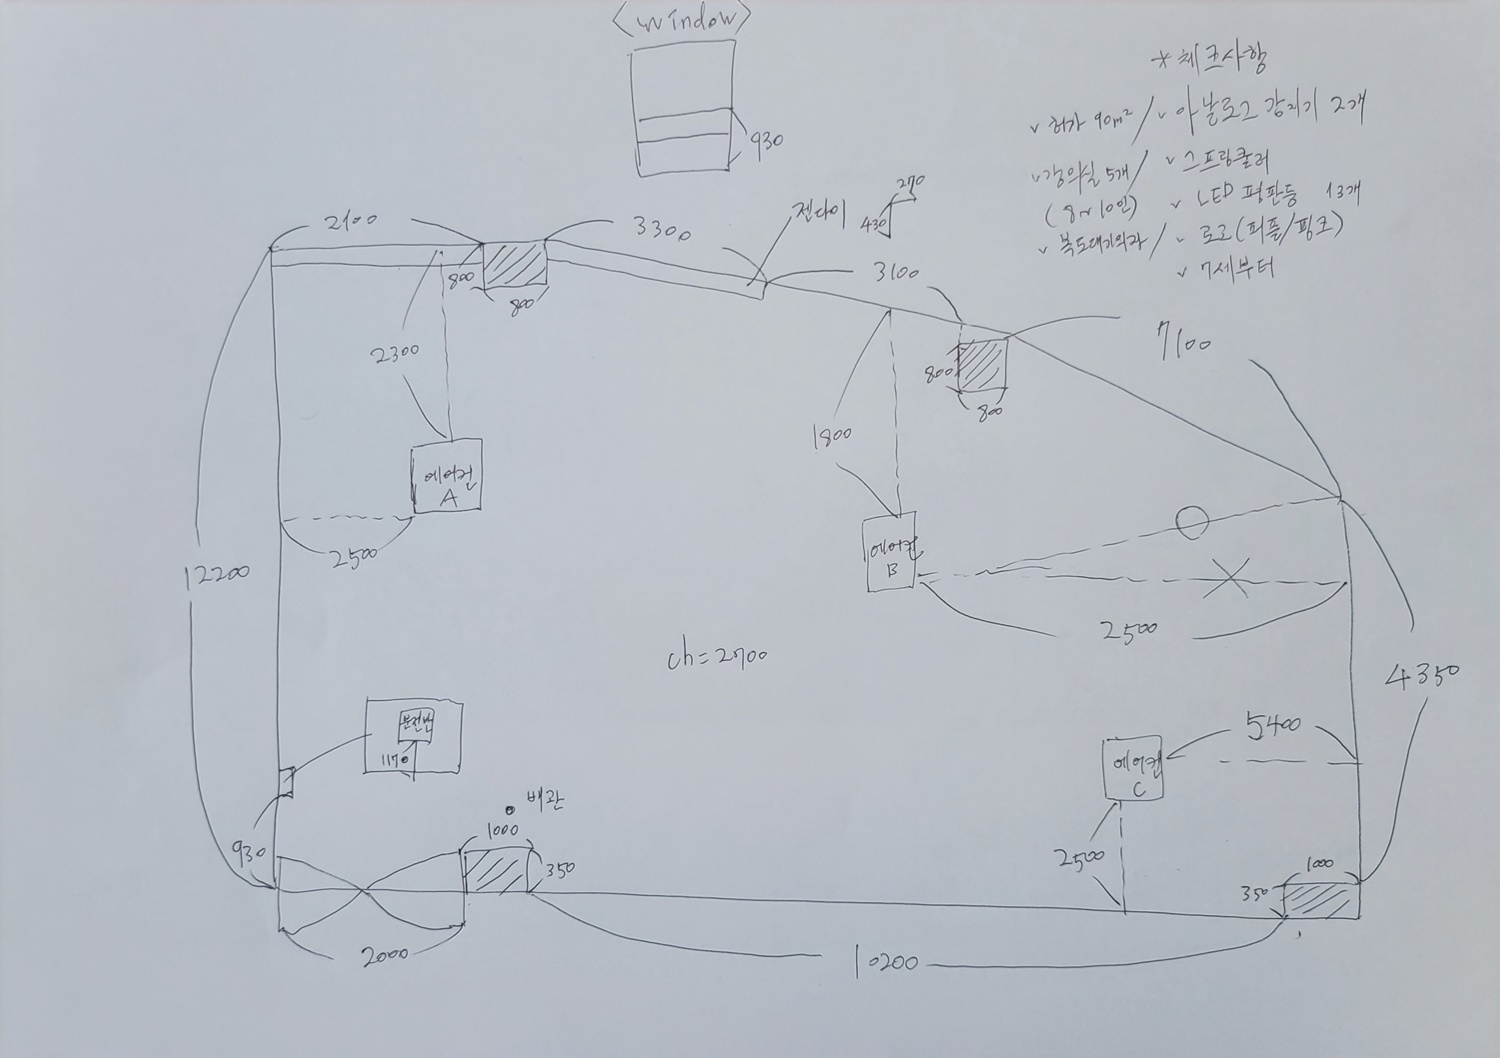 <window>
930
*체크사항
v 허가 90m² / v 아날로그 감지기 2개
v 강의실 5개 / v 스프링쿨러
(8~10인) v LED 평판등 13개
v 복도대기의자 / v 로고(퍼플/핑크)
v 7세부터
2100
3300
젠다이
270
430
3100
7100
800
800
2300
800
800
1800
에어컨
A
2500
에어컨
B
2500
12200
ch=2700
4350
분전반
1170
에어컨
C
5400
배관
1000
350
930
2500
350
1000
2000
10200